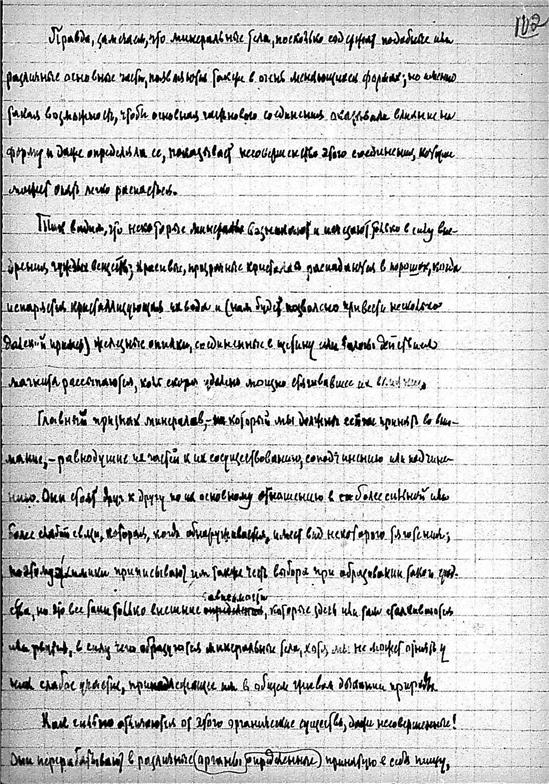 102
Правда, замечаем, что минеральные тела, поскольку содержат подобные или
различные основные части, появляются также в очень меняющихся формах; но именно
такая возможность, чтобы основная часть нового соединения оказывала влияние на
форму и даже определяла ее, показывает несовершенство этого соединения, которое
может опять легко распасться.
Так видим, что некоторые минералы возникают и исчезают только в силу вне-
дрения чуждых веществ; красивые, прозрачные кристаллы распадаются в порошок, когда
испарятся кристаллизующая их вода и (нам будет позволено привести несколько
далекий пример) железные опилки, соединенные в щетину или бороды действием
магнита рассыпаются, коль скоро удалено мощно связывавшее их влияние.
Главный признак минералов, – на который мы должны сейчас принять во вни-
мание, – равнодушие их частей к их сосуществованию, соподчинению или подчине-
нию. Они стоят друг к другу по их основному отношению в более сильной или
более слабой связи, которая, когда обнаруживается, имеет вид некоторого тяготения;
поэтому химики приписывают им также честь выбора при образовании такого срод-
зависимости
ства, но это все были только внешние, которые здесь или там сталкиваются
или рвутся, в силу чего образуются минеральные тела, хотя мы не можем отнять у
них слабое участие, принадлежащее им в общем жизненном дыхании природы.
Как сильно отличаются от этого органические существа, даже несовершенные!
Они перерабатывают в различные (органы определенные) принятую в себя пищу,